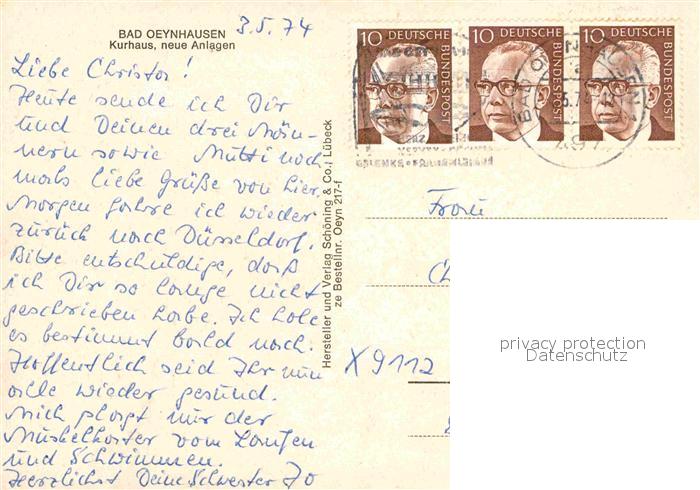 BAD OEYNHAUSEN
Kurhaus, neue Anlagen
3.5.74
Liebe Christa!
Heute sende ich Dir
und Deinen drei Män-
nern sowie Mutti noch
mals liebe Grüße von hier.
Morgen fahre ich wieder
zurück nach Düsseldorf.
Bitte entschuldige, daß
ich Dir so lange nicht
geschrieben habe. Ich hole
es bestimmt bald nach.
Hoffentlich seid Ihr nun
alle wieder gesund.
Mich plagt nur der
Muskelkater vom Laufen
und Schwimmen.
Herzlichst Deine Schwester Jo
Hersteller und Verlag Schöning & Co., Lübeck
ze Bestellnr. Oeyn 217-f
10 DEUTSCHE BUNDESPOST
10 DEUTSCHE BUNDESPOST
10 DEUTSCHE BUNDESPOST
BAD OEYNHAUSEN
Frau
Ch
X 9112
privacy protection
Datenschutz